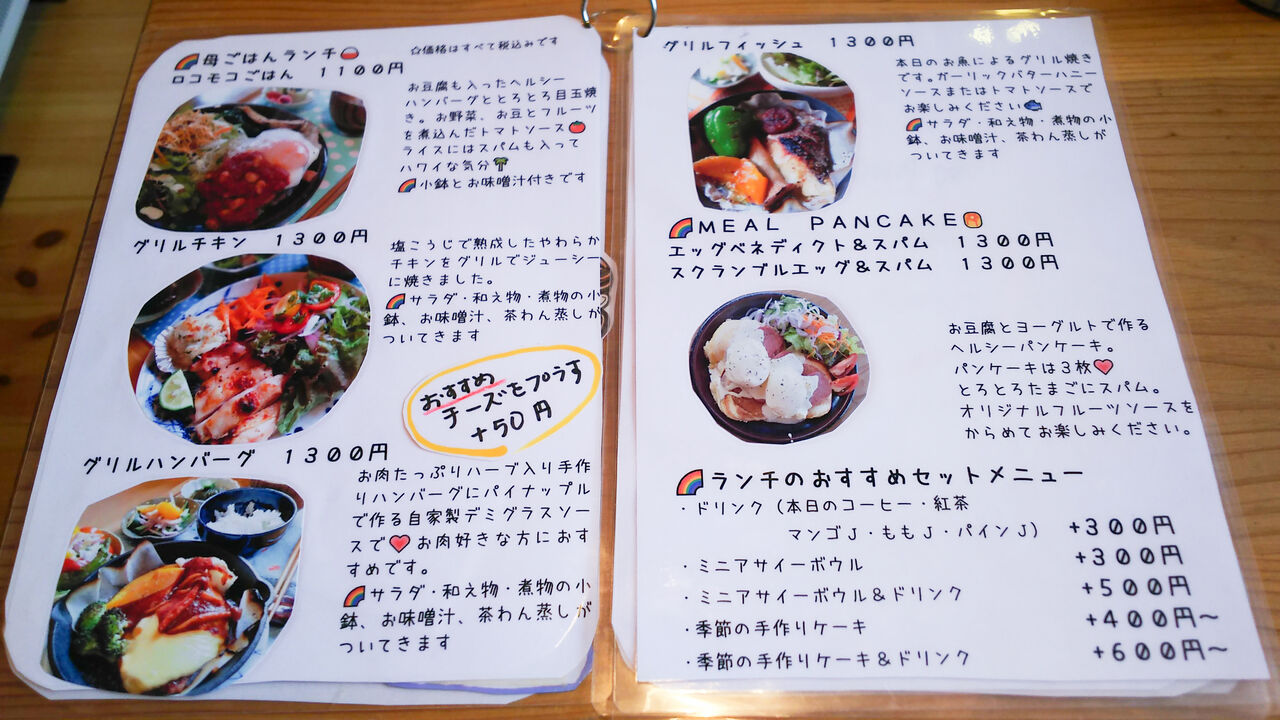 🌈母ごはんランチ🍚
☆価格はすべて税込みです
ロコモコごはん　１１００円
お豆腐も入ったヘルシー
ハンバーグととろとろ目玉焼
き。お野菜、お豆とフルーツ
を煮込んだトマトソース🍅
ライスにはスパムも入って
ハワイな気分🌴
🌈小鉢とお味噌汁付きです
グリルチキン　１３００円
塩こうじで熟成したやわらか
チキンをグリルでジューシー
に焼きました。
🌈サラダ・和え物・煮物の小
鉢、お味噌汁、茶わん蒸しが
ついてきます
おすすめ
チーズをプラす
+50円
グリルハンバーグ　１３００円
お肉たっぷりハーブ入り手作
りハンバーグにパイナップル
で作る自家製デミグラスソー
スで❤️お肉好きな方におす
すめです。
🌈サラダ・和え物・煮物の小
鉢、お味噌汁、茶わん蒸しが
ついてきます
グリルフィッシュ　１３００円
本日のお魚によるグリル焼き
です。ガーリックバターハニー
ソースまたはトマトソースで
お楽しみください🐟
🌈サラダ・和え物・煮物の小
鉢、お味噌汁、茶わん蒸しが
ついてきます
🌈ＭＥＡＬ　ＰＡＮＣＡＫＥ🥞
エッグベネディクト＆スパム　１３００円
スクランブルエッグ＆スパム　１３００円
お豆腐とヨーグルトで作る
ヘルシーパンケーキ。
パンケーキは３枚❤️
とろとろたまごにスパム。
オリジナルフルーツソースを
からめてお楽しみください。
🌈ランチのおすすめセットメニュー
・ドリンク（本日のコーヒー・紅茶
マンゴＪ・ももＪ・パインＪ）　+３００円
・ミニアサイーボウル　+３００円
・ミニアサイーボウル＆ドリンク　+５００円
・季節の手作りケーキ　+４００円～
・季節の手作りケーキ＆ドリンク　+６００円～